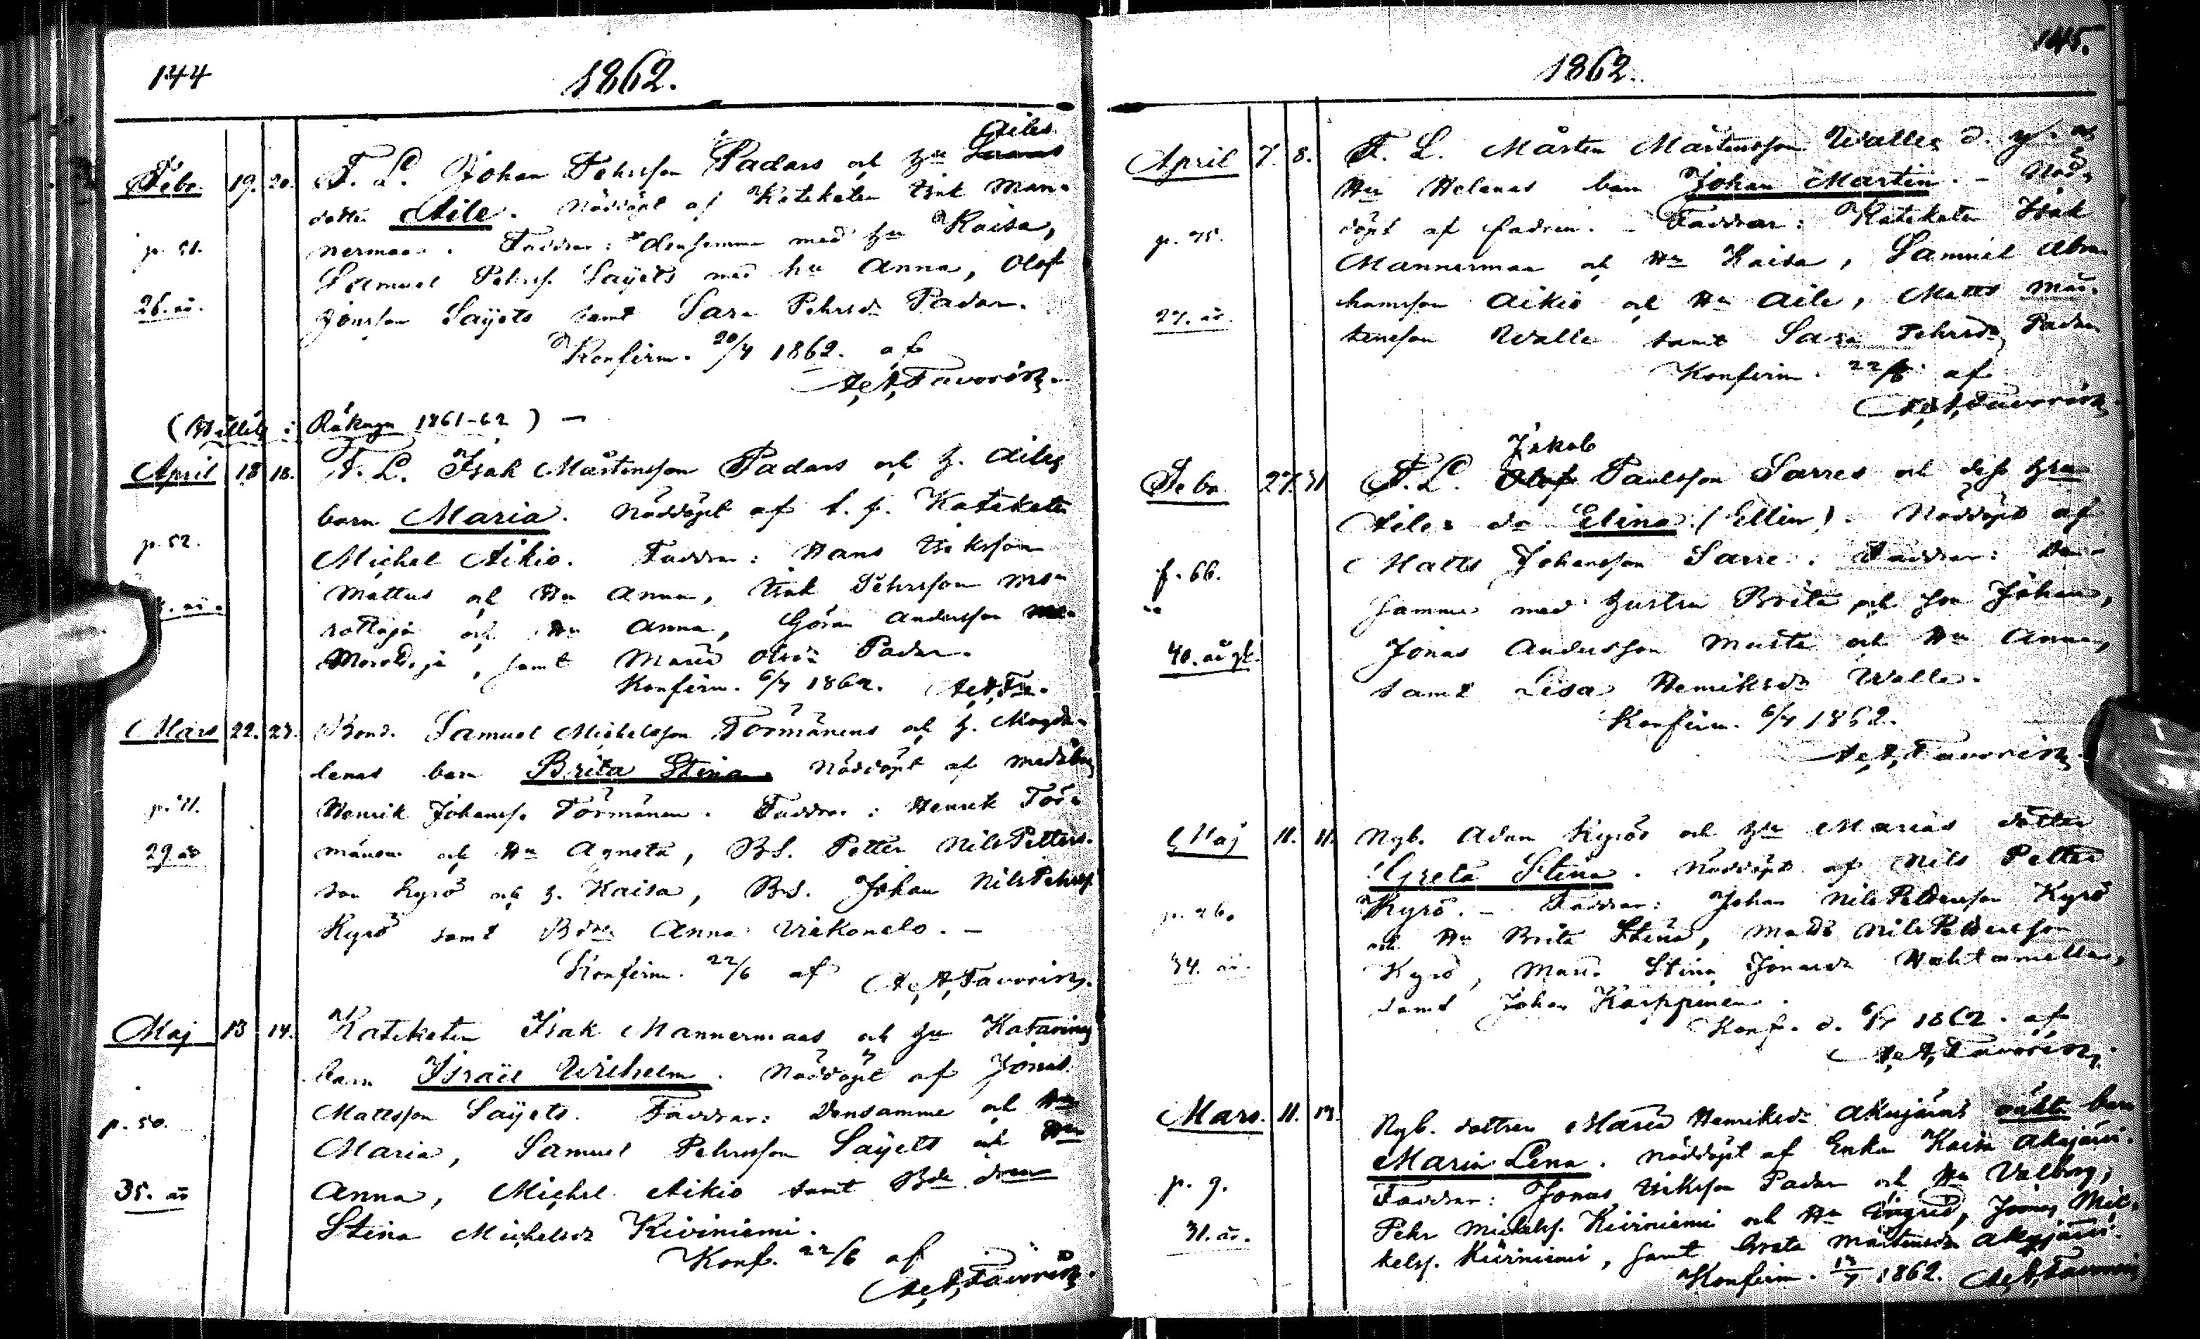 144
1862.
Febr. 19. 20. F. L. Johan Pehrsson Padars och hu Ailes
dotter Aile. Nöddöpt af Kateketen Isak Man-
p. 51. nermaa. Faddrar: densamme med hu Kaisa,
Samuel Pehrss. Sayets med hu Anna, Olof
26. år. Jonsson Sayets samt Sara Pehrsdr Padar.
Konfirm. 20/4 1862. af
A. A. Favorin.
Räkuga 1861-62) —
April 18 18. F. L. Isak Mårtensson Padars och h. Ailes
barn Maria. Nöddöpt af t. f. Kateketen
p. 52. Michel Aikio. Faddrar: Hans
Mattus och Hu Anna, Pehrsson
och Hu Anna, Göran Andersson
samt Maria Olsdr Padar.
Konfirm. 6/4 1862.
Mars 22. 23. Bond. Samuel Michelsson Törmänens och h. Magda-
lenas barn Brita Stina. Nöddöpt af
p. 11. Henrik Johanss. Törmänen. Faddrar: Henrik Tör-
29 år mänen och Hu Agneta, BS. Petter Nils Petters-
son Kyrö och h. Kaisa, BS. Johan Nils Pehrss.
Kyrö samt Bdr Anna —
Konfirm. 22/6 af A. A. Favorin.
Maj 13 14. Kateketen Isak Mannermaas och hu Katarinas
barn Israel Wilhelm. Nöddöpt af Jonas
p. 50. Mattsson Sayets. Faddrar: Densamme och Hu
Maria, Samuel Pehrsson Sayets och Hu
35. år Anna, Michel Aikio samt Bdr
Stina Michelsdr Kiviniemi.
Konf. 22/6 af
A. A. Favorin.
145.
1862.
April 7. 8. F. L. Mårten Mårtensson Walles d. y. o
Hu Helenas barn Johan Martin. — Nöd-
p. 75. döpt af fadren. — Faddrar: Kateketen Isak
Mannermaa och Hu Kaisa, Samuel Abra-
27. år. hamsson Aikio och Hu Aile, Matts Mår-
tensson Walle samt Sara Pehrsdr Padar
Konfirm. 22/6 af
A. A. Favorin.
Febr. F. L. Jakob Paulsson Sarres och dess hustru
Ailes do Elina (Ellin). Nöddöpt af
p. 66. Matts Johansson Sarre. Faddrar: Den-
samme med hustru Brita och son Johan,
40. år gl. Jonas Andersson och Hu Anna,
samt Lisa Henriksdr Walle.
Konfirm. 6/4 1862.
A. A. Favorin.
Maj 11. 11. Nyb. Adam Kyrös och hu Marias dotter
Greta Stina. Nöddöpt af Nils Petter
p. 26. Kyrö. — Faddrar: Johan Nils Pettersson Kyrö
och Hu Brita Stina, Matts Nils Pettersson
34. år. Kyrö, Maria Stina Jonasdr
samt Johan Karppinen.
Konf. d. 1862. af
A. A. Favorin.
Mars. 11. Nyb. dottren Maria Henriksdr Akujärvis oäkta barn
Maria Lena. Nöddöpt af Enka Kaisa Akujärvi.
p. 9. Faddrar: Jonas Padar och Hu Valborg,
Pehr Michelss. Kiviniemi och Hu Ingrid, Jonas Mic-
31. år. kelss. Kiviniemi, samt Greta Mårtensdr Akujärvi.
Konfirm. 1862. A. A. Favorin